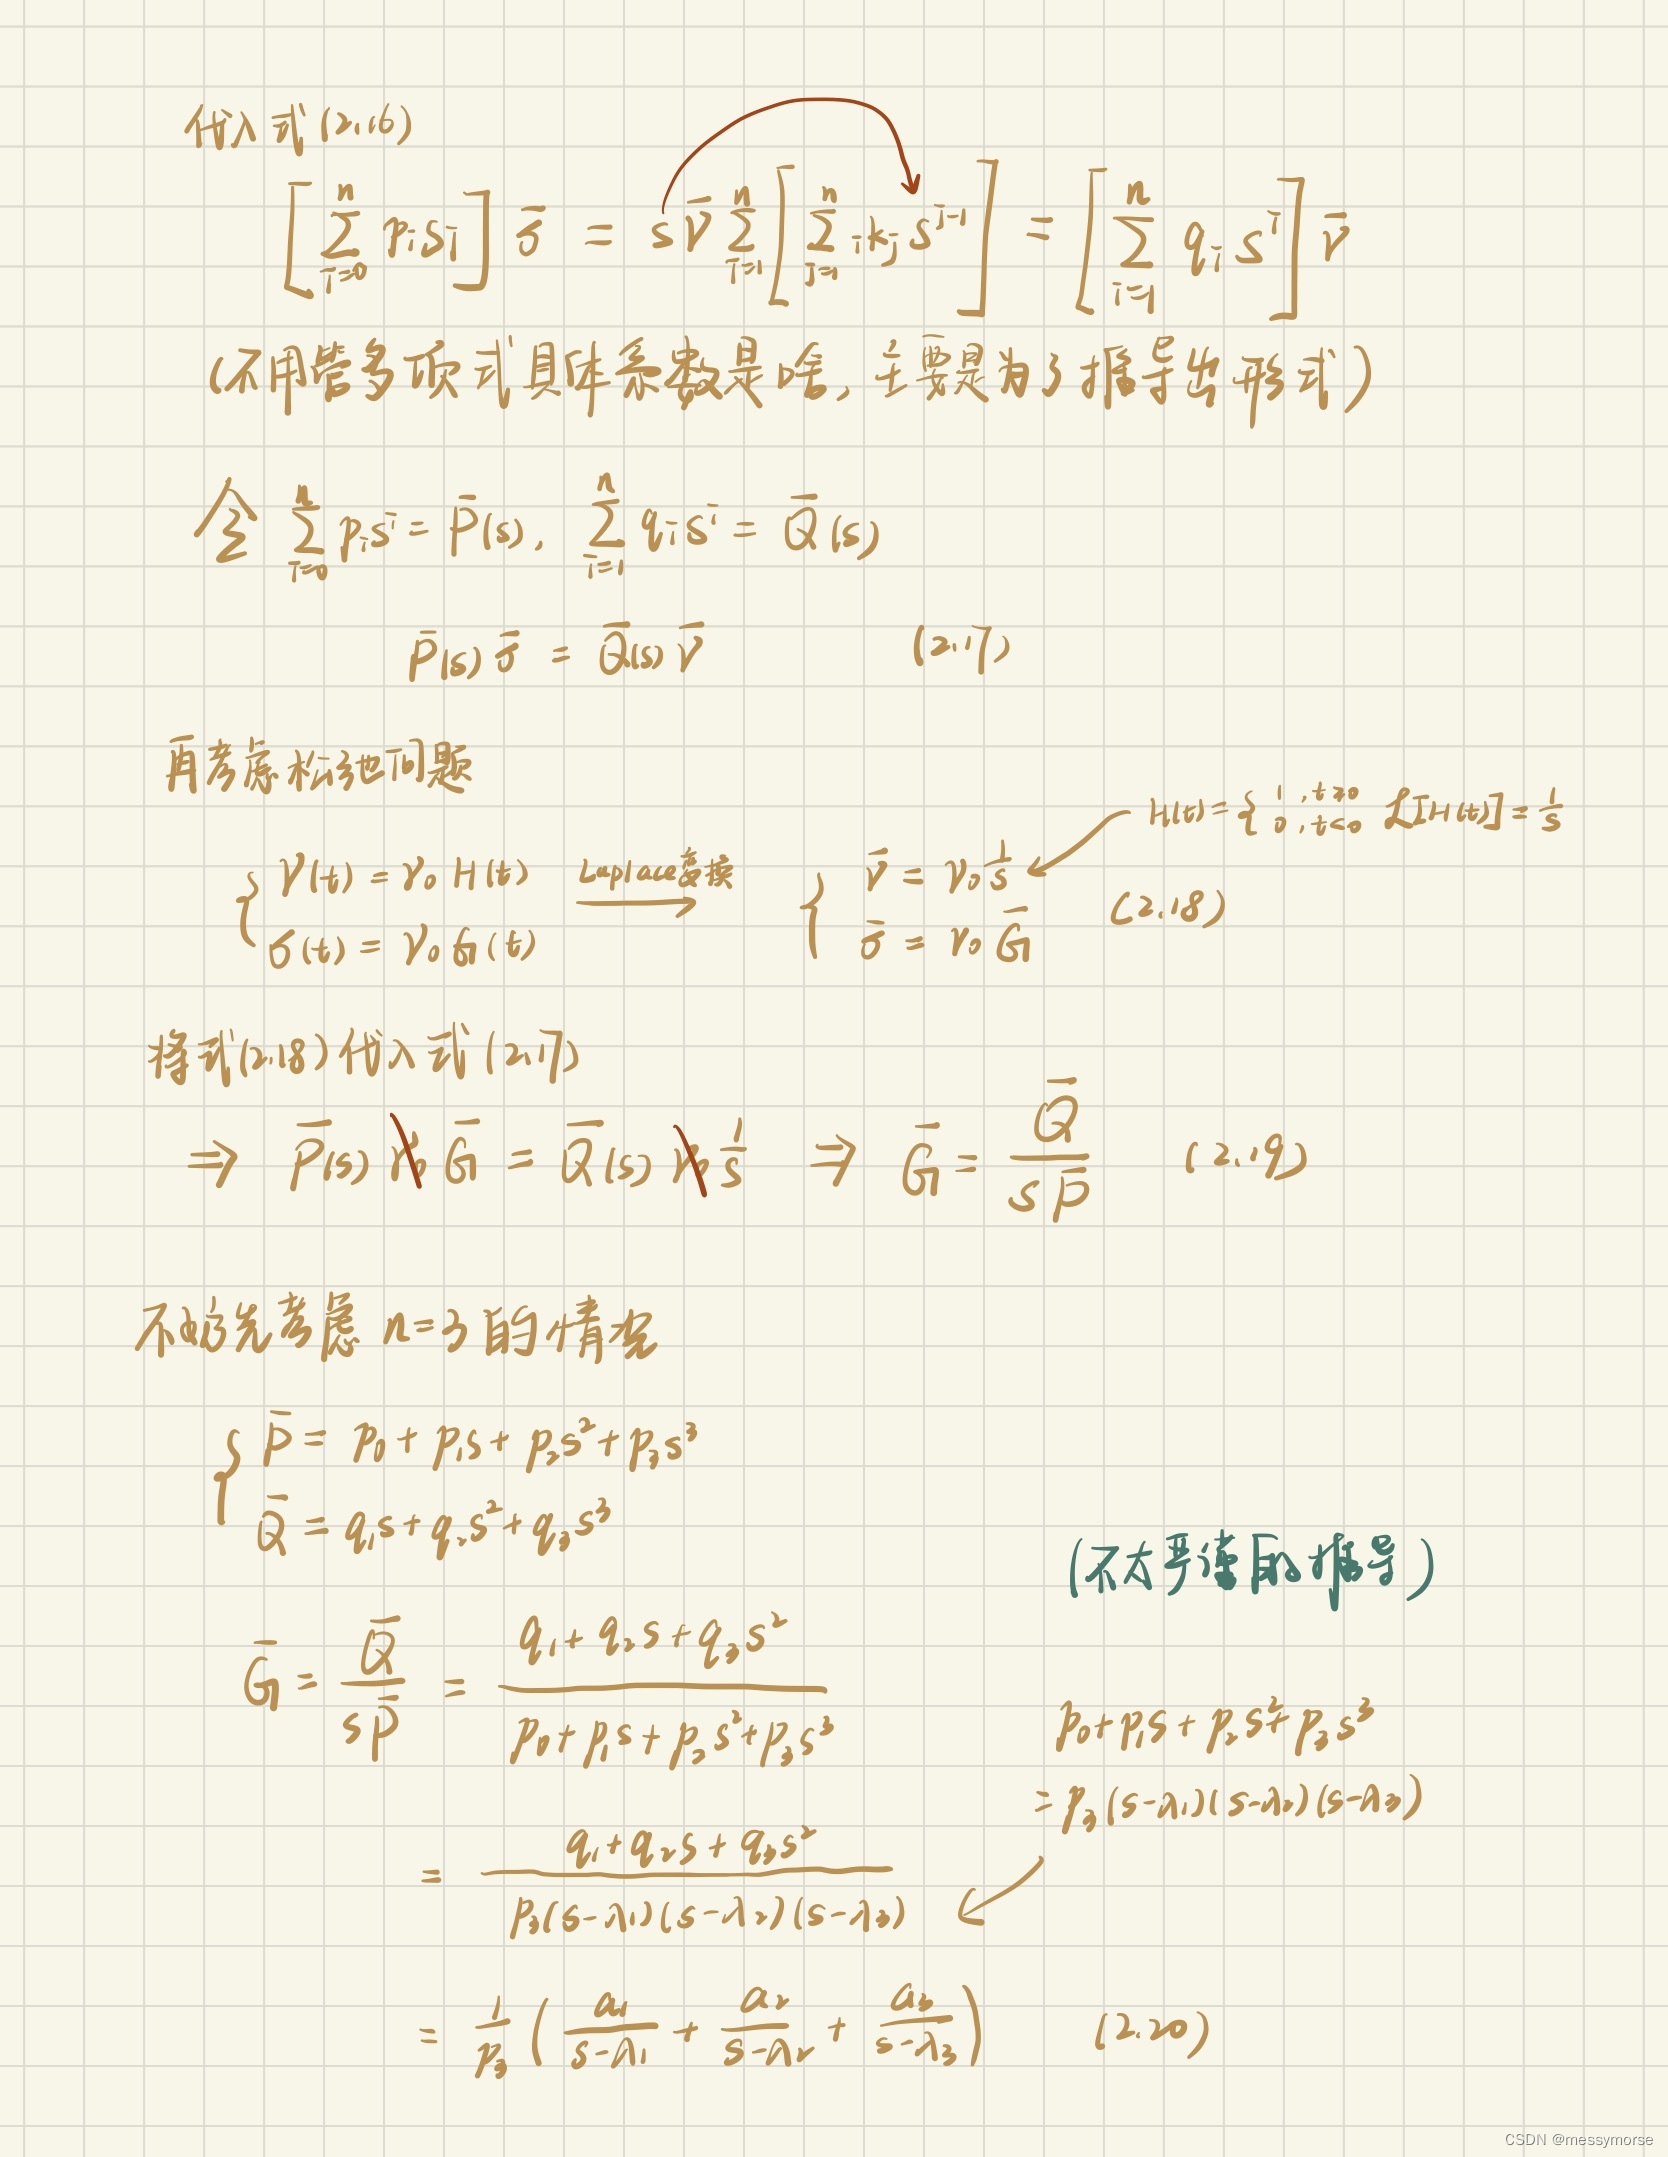 代入式(2.16)
[∑_{i=0}^{n} p_i s^i] σ̄ = s γ̄ ∑_{i=1}^{n} [∑_{j=1}^{n} {}_i k_j s^{j-1}] = [∑_{i=1}^{n} q_i s^i] γ̄
(不用管多项式具体系数是啥,主要是为了推导出形式)
令 ∑_{i=0}^{n} p_i s^i = P̄(s), ∑_{i=1}^{n} q_i s^i = Q̄(s)
P̄(s) σ̄ = Q̄(s) γ̄ (2.17)
再考虑松弛问题
H(t) = { 1, t≥0 0, t<0 ℒ[H(t)] = 1/s
{ γ(t) = γ₀ H(t) Laplace变换 { γ̄ = γ₀ 1/s
σ(t) = γ₀ G(t) σ̄ = γ₀ Ḡ (2.18)
将式(2.18)代入式(2.17)
⇒ P̄(s) γ₀ Ḡ = Q̄(s) γ₀ 1/s ⇒ Ḡ = Q̄/(sP̄) (2.19)
不妨先考虑 n=3 的情况
{ P̄ = p₀ + p₁s + p₂s² + p₃s³
Q̄ = q₁s + q₂s² + q₃s³
(不太严谨的推导)
Ḡ = Q̄/(sP̄) = (q₁ + q₂s + q₃s²)/(p₀ + p₁s + p₂s² + p₃s³)
p₀ + p₁s + p₂s² + p₃s³
= p₃(s-λ₁)(s-λ₂)(s-λ₃)
= (q₁ + q₂s + q₃s²)/(p₃(s-λ₁)(s-λ₂)(s-λ₃))
= 1/p₃ (a₁/(s-λ₁) + a₂/(s-λ₂) + a₃/(s-λ₃)) (2.20)
CSDN @messymorse